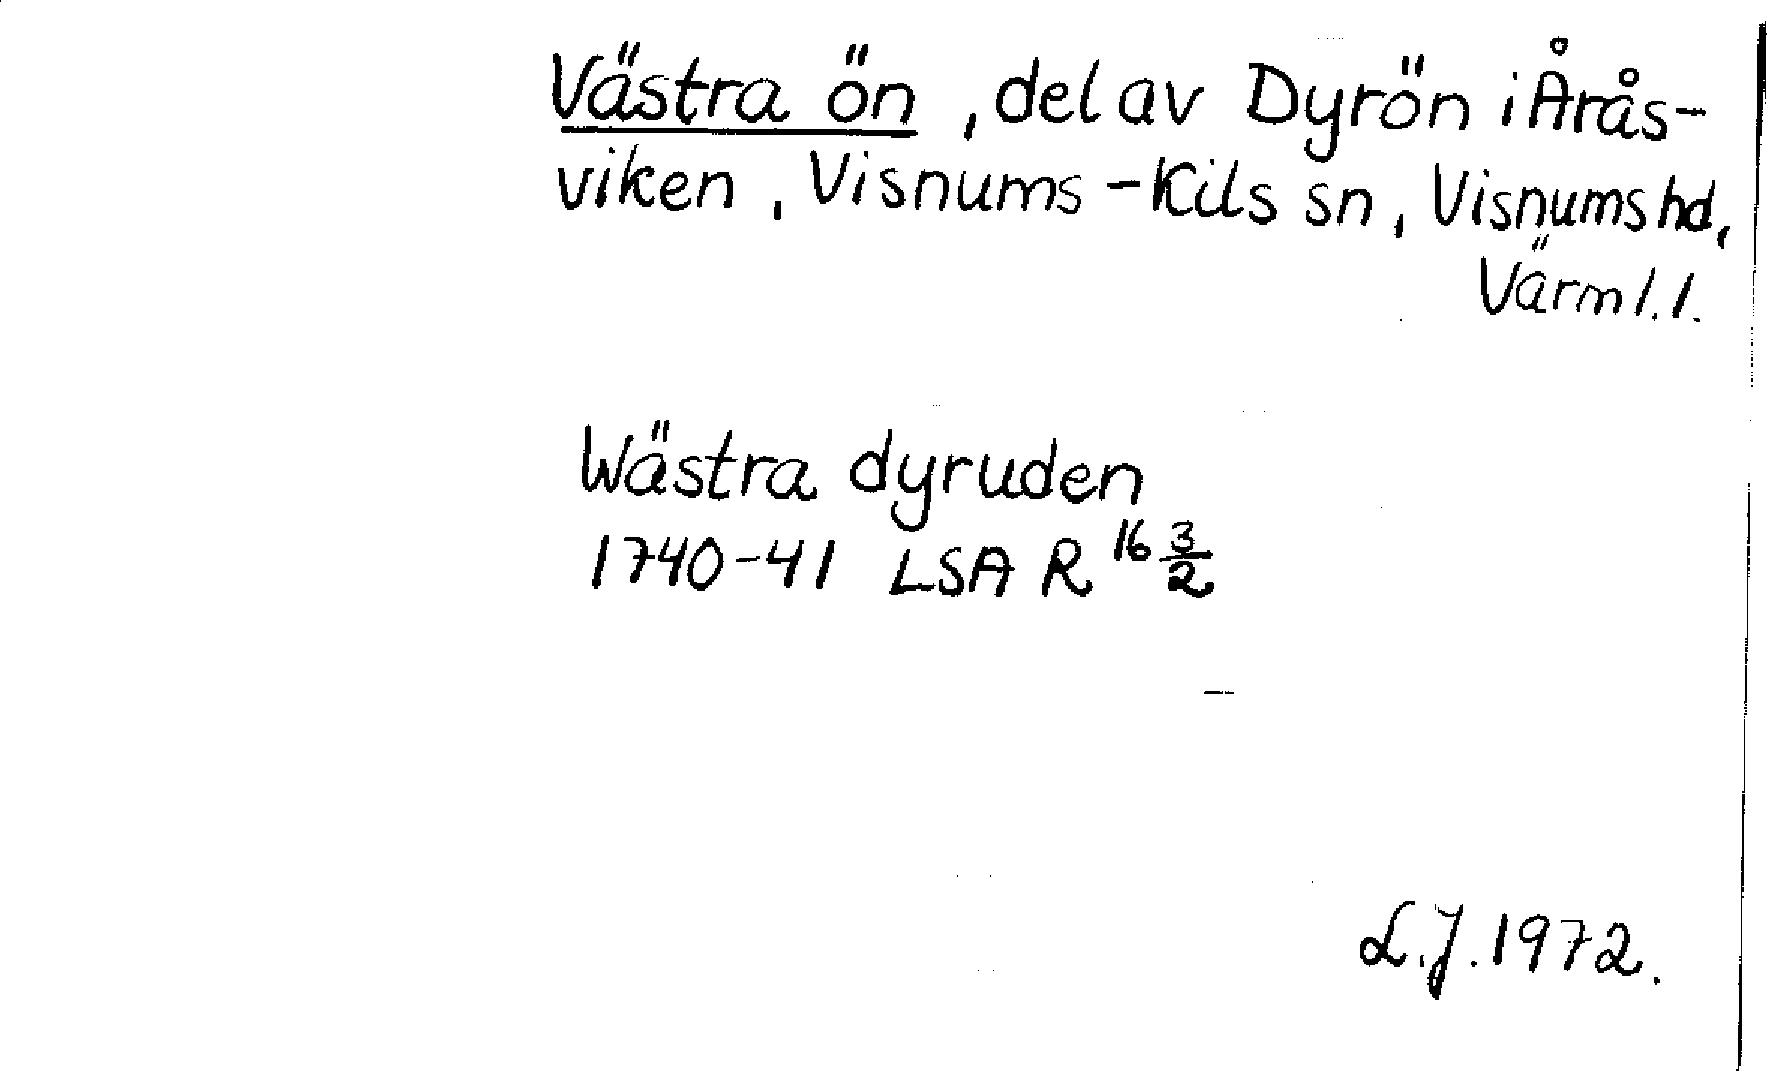 Västra ön, del av Dyrön i Årås-
viken, Visnums-Kils sn, Visnums hd,
Värml. l.
Wästra dyruden
1740-41 LSA R 16 3/2
L.J. 1972.